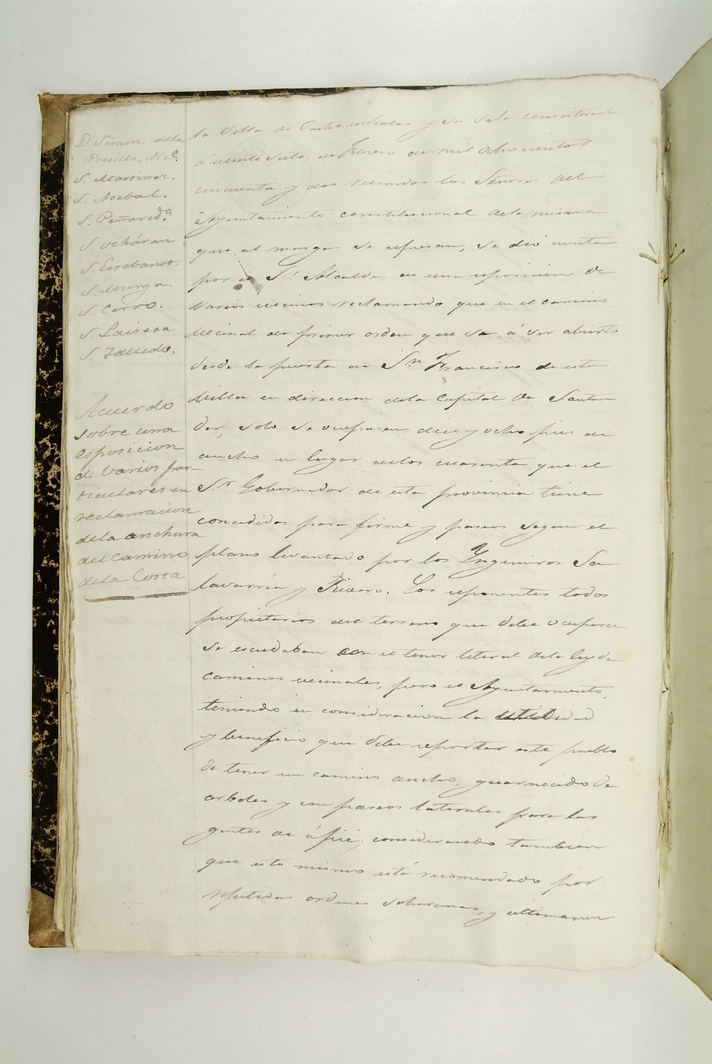 D. Simon dela
Presilla, Alc.
S. Martinez.
S. Acebal.
S. Peñaredª
S. Ocháran
S.
S.
S. Carro.
S. Laiseca
S. Talledo.
Acuerdo
sobre una
esposicion
de varios par-
ticulares en
reclamacion
dela anchura
del Camino
dela Costa
la Villa de Castro urdiales y su sala consistorial
á veinte siete de Febrero de mil ochocientos
cincuenta y dos reunidos los Señores del
Ayuntamiento constitucional dela misma
que al margen se espresan, se dió cuenta
por el Sr. Alcalde de una esposicion de
varios vecinos reclamando que en el camino
vecinal de primer orden que va á ser abierto
desde la puerta de Sn. Francisco de esta
Villa en direccion dela Capital de Santan
der, solo se ocupasen diez y ocho pies de
ancho en lugar delos cuarenta que el
Sr. Gobernador de esta provincia tiene
concedidos para firme y paseos segun el
plano levantado por los Yngenieros Sa
lavarría y Rivero. Los esponentes todos
propietarios del terreno que debe ocuparse
se escudaban con el tenor literal dela ley de
caminos vecinales, pero el Ayuntamiento,
teniendo en consideracion la utilidad
y beneficio que debe reportar este pueblo
de tener un camino ancho, guarnecido de
arboles y con paseos laterales para las
gentes de á pié, considerando tambien
que esto mismo está recomendado por
repetidas ordenes soberanas, y ultimamen